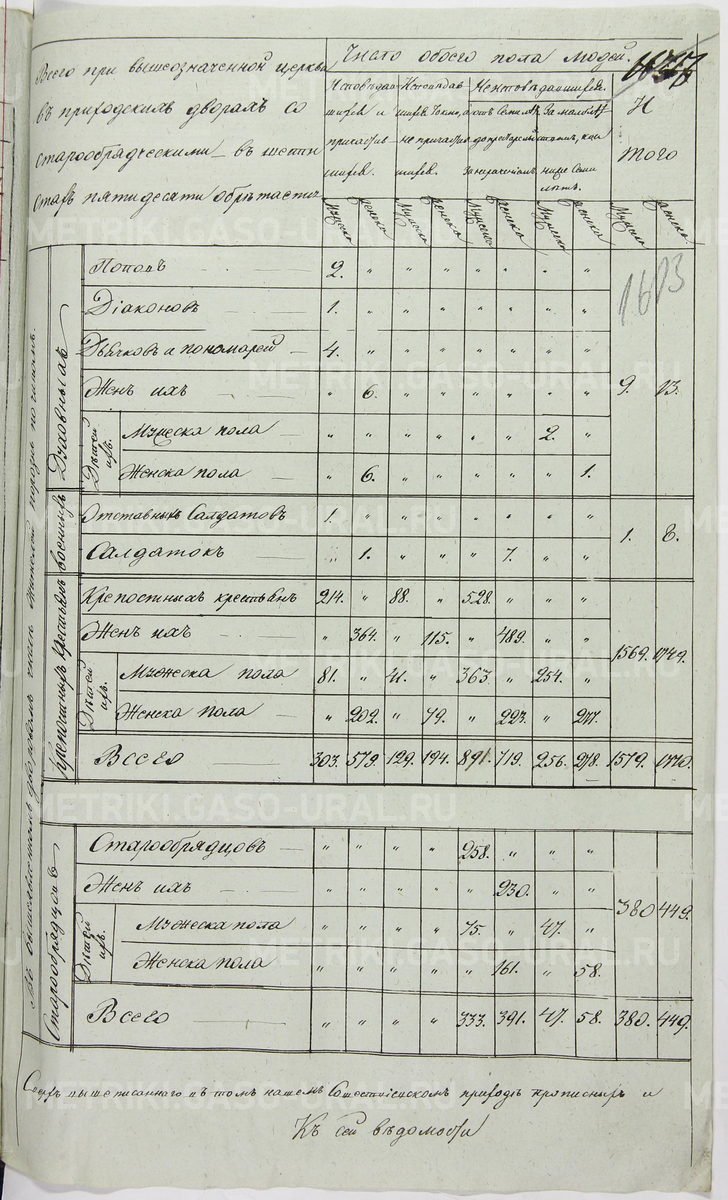 Всего при вышеозначенной церкви
въ приходскихъ дворахъ со
старообрядческими въ шести
стахъ пятидесяти обрѣтается
Число обоего пола людей.
Исповѣдав
шихся и
причастив
шихся.
Исповѣдав
шихся токмо, а
не причастив
шихся.
Неисповѣдавшихся.
За нерачениемъ
За малолѣт
ствомъ, как
ниже Семи
лѣтъ.
И
того
Мужеска Женска Мужеска Женска Мужеска Женска Мужеска Женска Мужеска Женска
1613
Духовныхъ
Поповъ 2. " " " " " " "
Діаконовъ 1. " " " " " " "
Дьячковъ и пономарей 4. " " " " " " "
Женъ ихъ " 6. " " " " " " 9. 13.
Дѣтей ихъ.
Мужеска пола " " " " " " 2. "
Женска пола " 6. " " " " " 1.
военныхъ
Отставныхъ Салдатовъ 1. " " " " " " "
Салдатокъ " 1. " " " 7. " " 1. 8.
Крепостныхъ крестьянъ
Крепостныхъ крестьянъ 214. " 88. " 528. " " "
Женъ ихъ " 364. " 115. " 489. " " 1569. 1749.
Дѣтей ихъ.
Мужеска пола 81. " 41. " 363. " 254. "
Женска пола " 202. " 79. " 223. " 277.
Всего 303. 579. 129. 194. 891. 719. 256. 278. 1579. 1770.
Старообрядцовъ
Старообрядцовъ " " " " 258. " " "
Женъ ихъ " " " " " 230. " " 380 449.
Дѣтей ихъ.
Мужеска пола " " " " 75. " 47. "
Женска пола " " " " " 161. " 58.
Всего " " " " 333. 391. 47. 58. 380. 449.
Сверхъ вышеписаннаго въ томъ нашемъ приходѣ прописныхъ и
Къ сей вѣдомости
METRIKI.GASO-URAL.RU